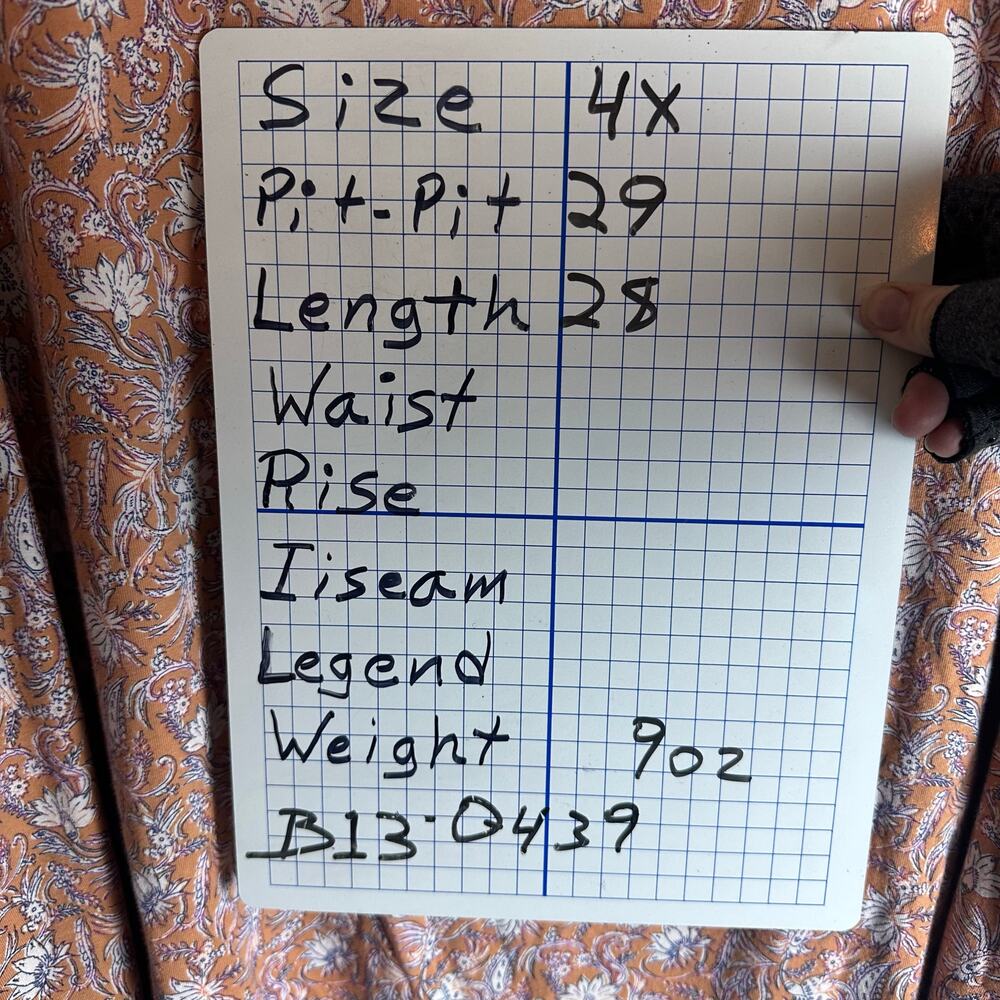 Size 4X
Pit-Pit 29
Length 28
Waist
Rise
Iiseam
Legend
Weight 9oz
B13-0439